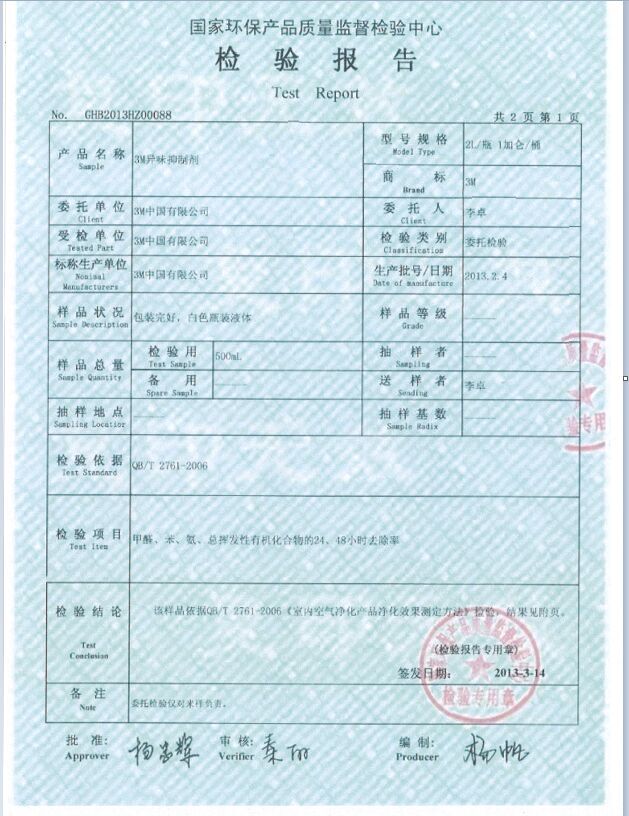 国家环保产品质量监督检验中心
检验报告
Test Report
No. GHB2013HZ00088 共 2 页 第 1 页
产品名称 3M异味抑制剂 型号规格 2L/瓶 1加仑/桶
Sample Model Type
商标 3M
Brand
委托单位 3M中国有限公司 委托人 李卓
Client Client
受检单位 3M中国有限公司 检验类别 委托检验
Tested Part Classification
标称生产单位 3M中国有限公司 生产批号/日期 2013.2.4
Nominal Manufacturers Date of manufacture
样品状况 包装完好，白色瓶装液体 样品等级 ——
Sample Description Grade
样品总量 检验用 500mL 抽样者 ——
Sample Quantity Test Sample Sampling
备用 —— 送样者 李卓
Spare Sample Sending
抽样地点 —— 抽样基数 ——
Sampling Location Sample Radix
检验依据 QB/T 2761-2006
Test Standard
检验项目 甲醛、苯、氨、总挥发性有机化合物的24、48小时去除率
Test Item
检验结论 该样品依据QB/T 2761-2006《室内空气净化产品净化效果测定方法》检验，结果见附页。
Test
Conclusion
(检验报告专用章)
签发日期： 2013-3-14
检验专用章
备注 委托检验仅对来样负责。
Note
批准： 审核： 编制：
Approver Verifier Producer 杨帆